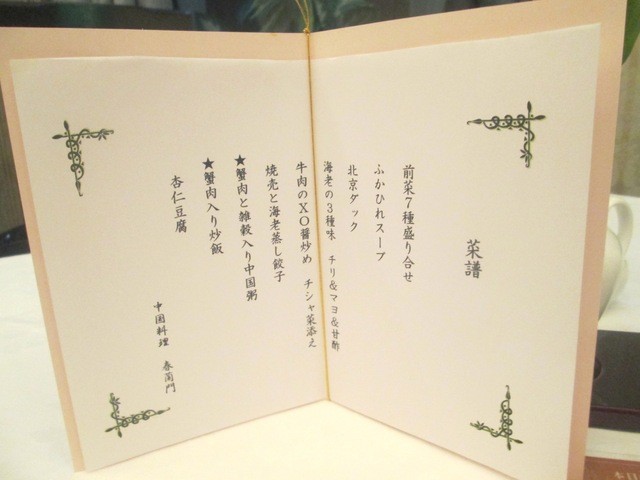 菜譜
前菜7種盛り合せ
ふかひれスープ
北京ダック
海老の3種味 チリ&マヨ&甘酢
牛肉のXO醬炒め チシャ菜添え
焼売と海老蒸し餃子
★蟹肉と雑穀入り中国粥
★蟹肉入り炒飯
杏仁豆腐
中国料理 春蘭門